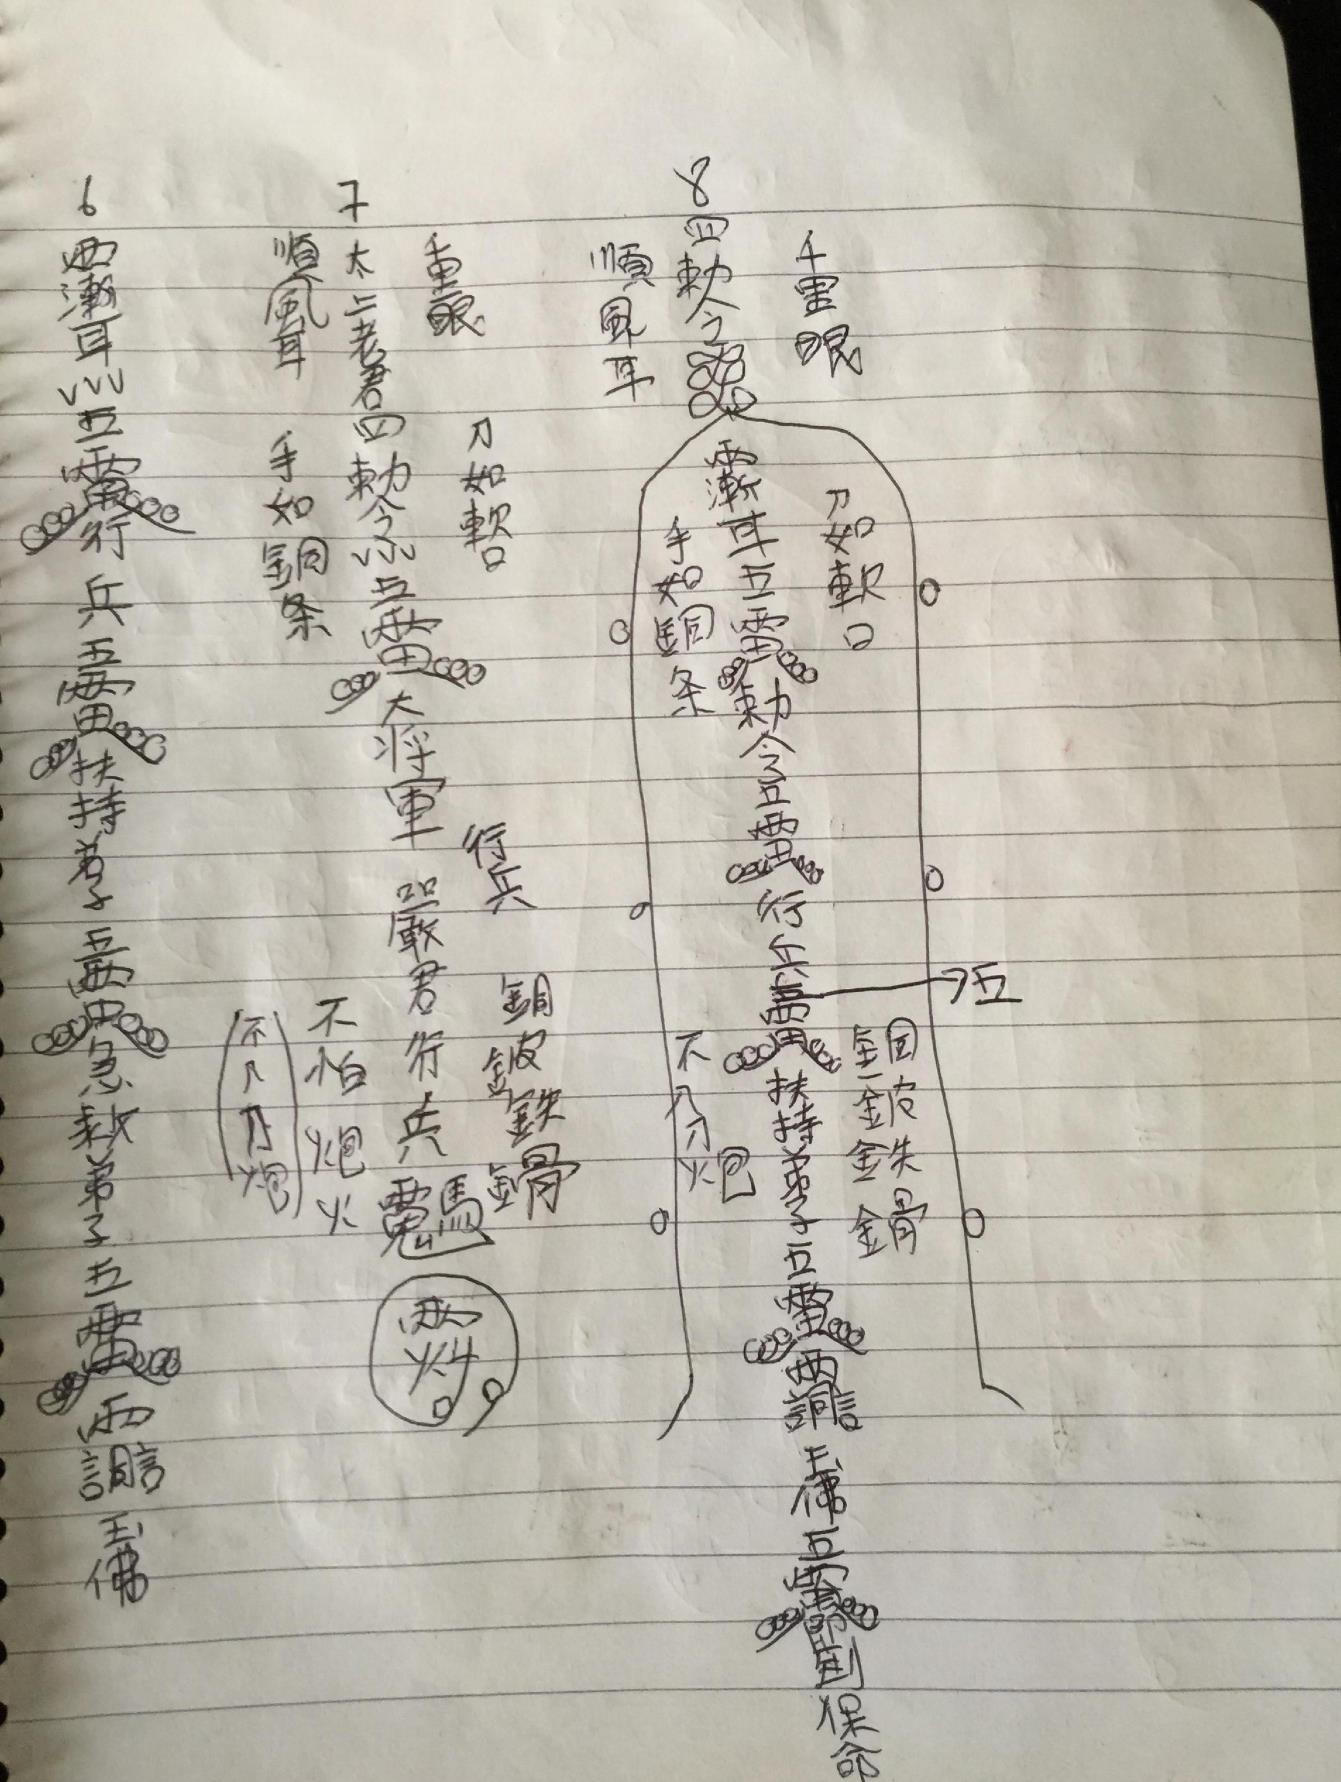 6
耳
五雷行兵五雷扶持弟子五雷急救弟子五雷
玉佛
7
順風耳
太上老君四勅令
五雷大将軍
嚴君行兵
千里眼
手如銅条
刀如軟口
行兵
不怕炮火
不入刀炮
銅皮鉄骨
8
四勅令
順風耳
千里眼
耳五雷勅令五雷行兵
雷扶持弟子五雷
玉佛五雷
保命
手如銅条
刀如軟口
五
不入刀炮
銅皮鉄骨